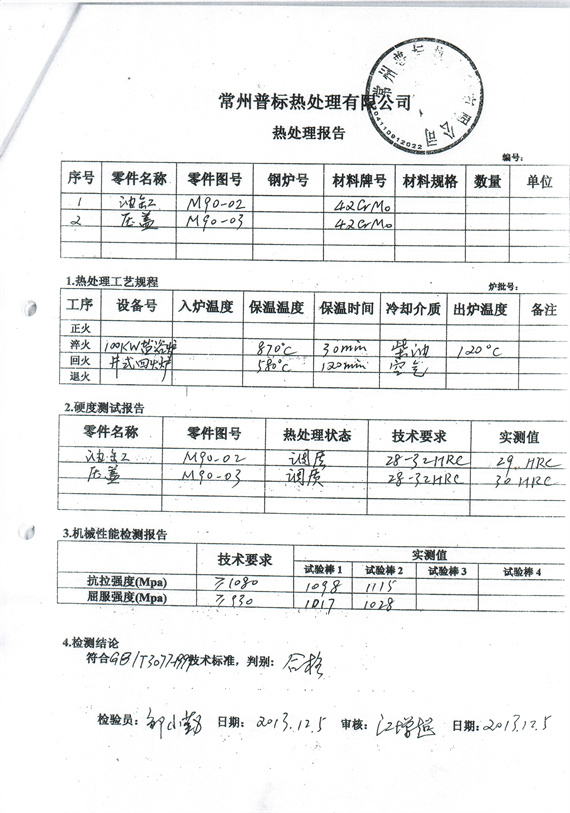 常州普标热处理有限公司
热处理报告
编号：
序号 零件名称 零件图号 钢炉号 材料牌号 材料规格 数量 单位
1 油缸 M90-02 42CrMo
2 压盖 M90-03 42CrMo
1.热处理工艺规程 炉批号：
工序 设备号 入炉温度 保温温度 保温时间 冷却介质 出炉温度 备注
正火
淬火 100KW盐浴炉 870℃ 30min 柴油 120℃
回火 井式回火炉 580℃ 120min 空气
退火
2.硬度测试报告
零件名称 零件图号 热处理状态 技术要求 实测值
油缸 M90-02 调质 28-32HRC 29 HRC
压盖 M90-03 调质 28-32HRC 30 HRC
3.机械性能检测报告
技术要求 实测值
试验棒 1 试验棒 2 试验棒 3 试验棒 4
抗拉强度(Mpa) ≥1080 1098 1115
屈服强度(Mpa) ≥930 1017 1028
4.检测结论
符合GB/T3077-1999技术标准，判别：合格
检验员： 日期：2013.12.5 审核：江增超 日期：2013.12.5